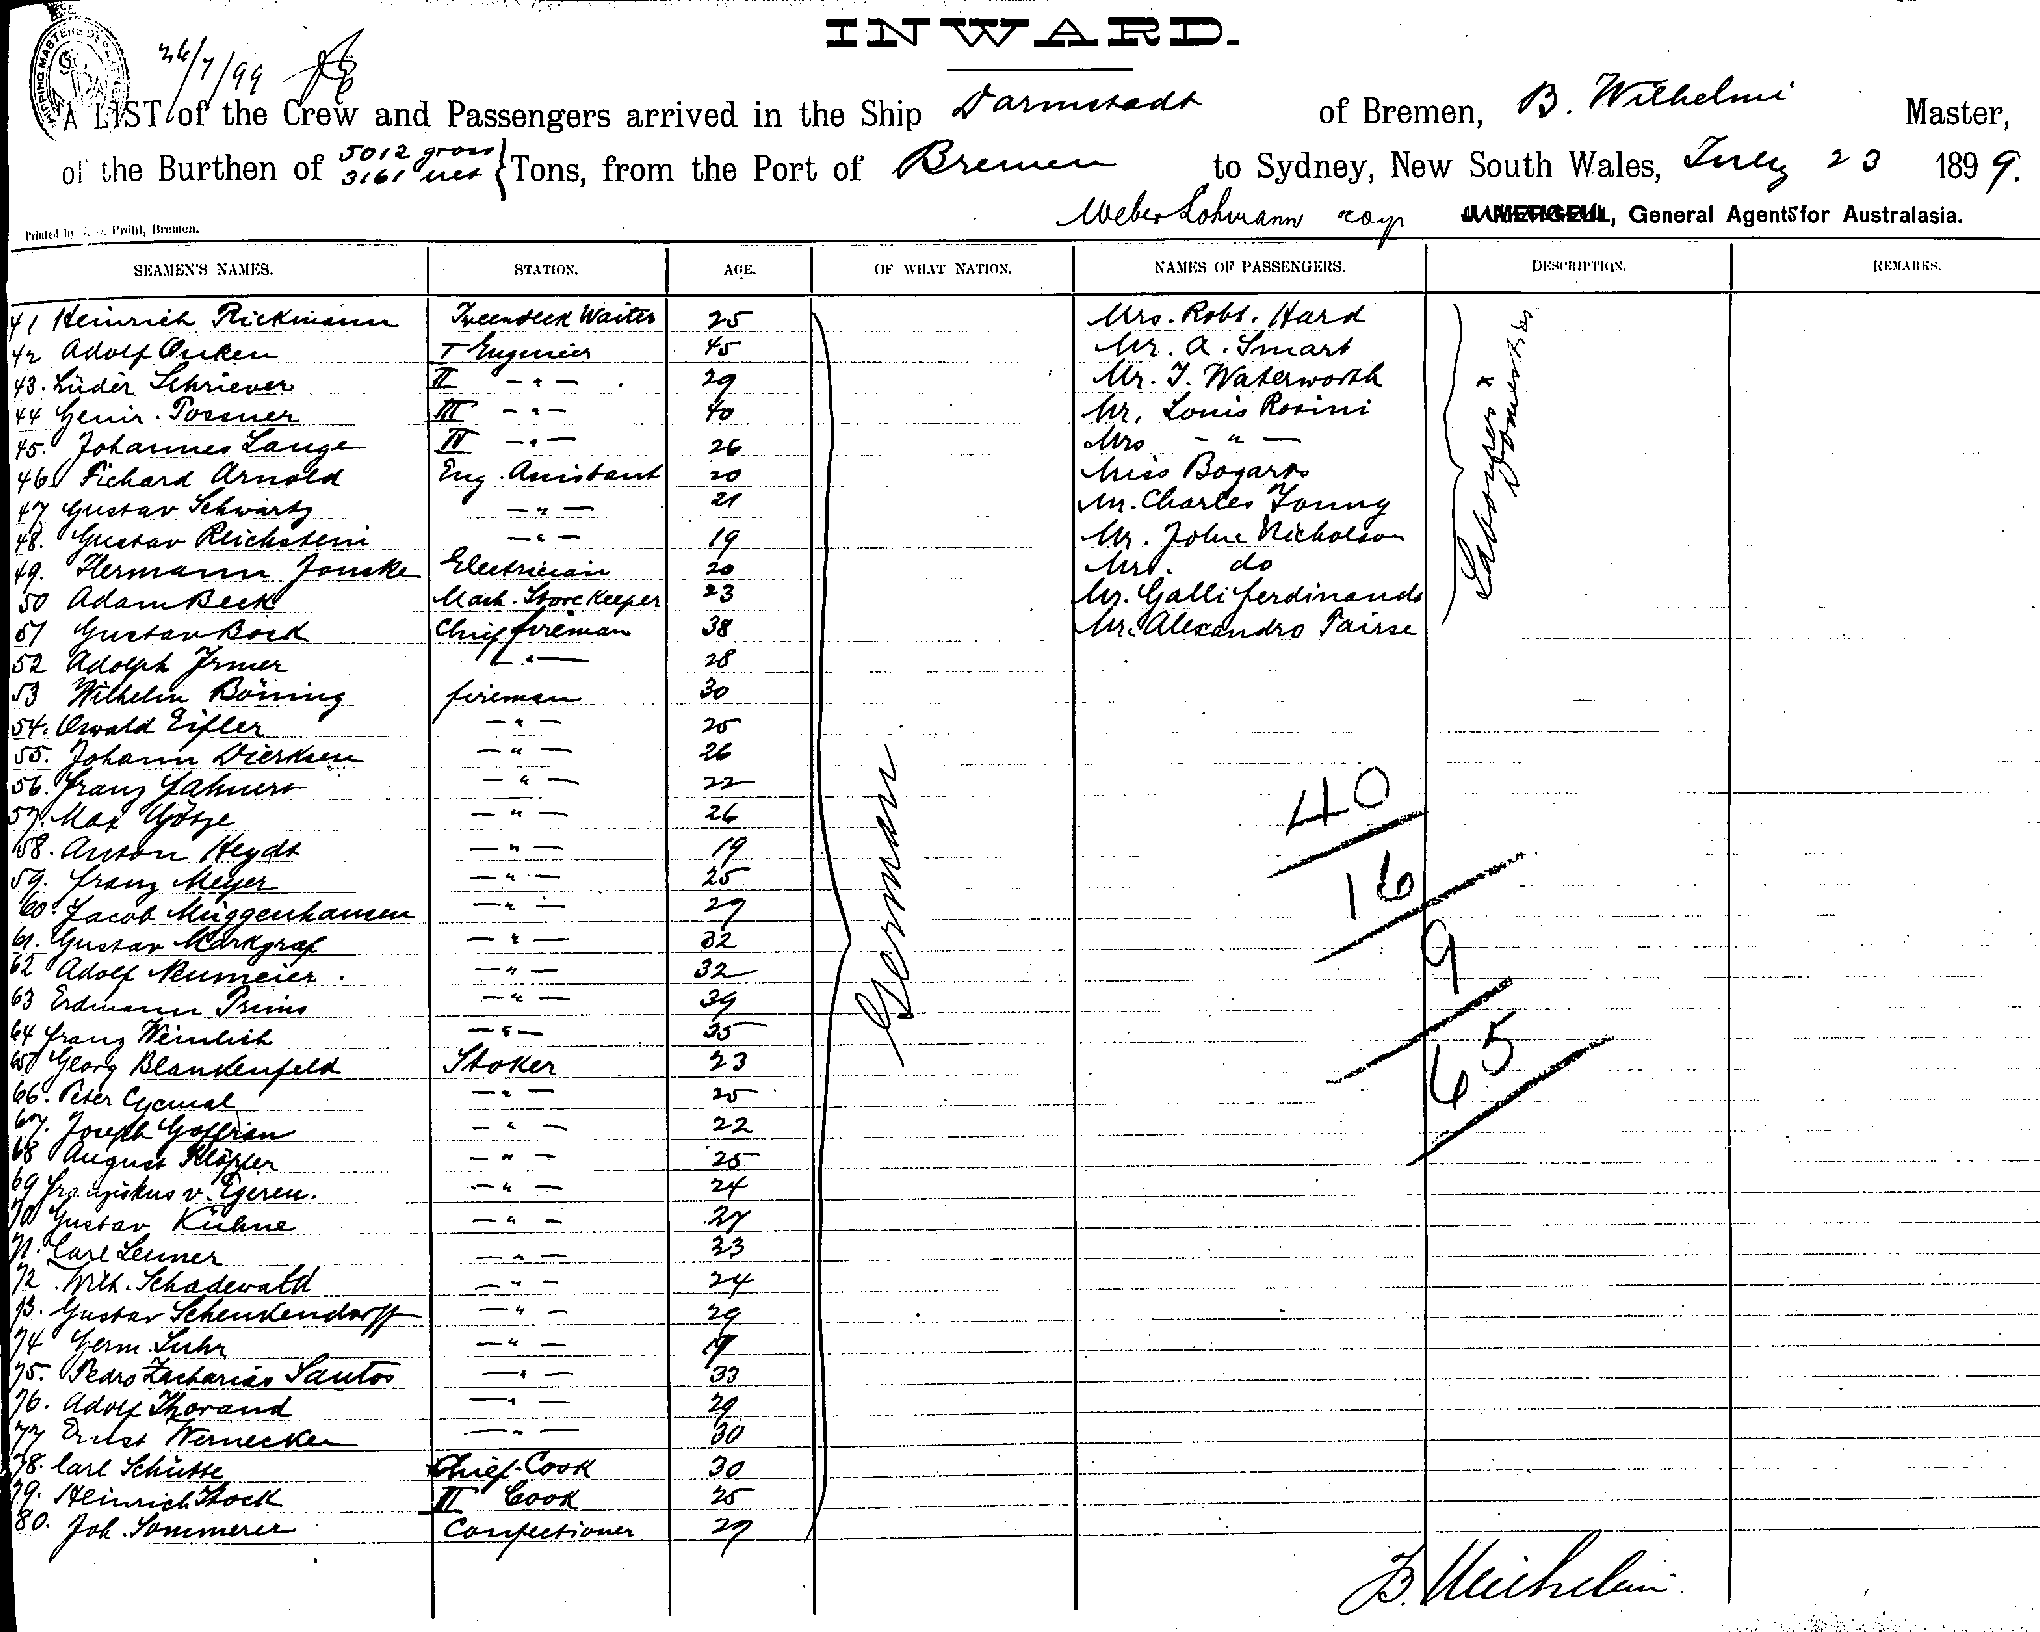 INWARD.
26/7/99
A LIST of the Crew and Passengers arrived in the Ship Darmstadt of Bremen, B. Wilhelmi Master,
of the Burthen of 5012 gross 3161 net Tons, from the Port of Bremen to Sydney, New South Wales, July 23 1899.
Weber Lohmann , General Agents for Australasia.
Printed by Bremen.
SEAMEN'S NAMES. STATION. AGE. OF WHAT NATION. NAMES OF PASSENGERS. DESCRIPTION. REMARKS.
41 Heinrich Rickmann Tweendeck Waiter 25 Mrs. Robt. Hard
42 Adolf Onken I Engineer 45 Mr. A. Smart
43. Lüder Schriever II - " - 29 Mr. J. Waterworth
44 III - " - 40 Mr. Louis Rosini
45. Johannes Lange IV - " - 26 Mrs - " -
46. Richard Arnold Eng. Assistant 20 Miss
47 Gustav Schwartz - " - 21 Mr. Charles Young
48. Gustav Reichstein - " - 19 Mr. John Nicholson
49. Hermann Electrician 20 Mrs. do
50 Adam Beck Mach. Store Keeper 23 Mr. Galli Ferdinando
51 Gustav Bock Chief fireman 38 Mr. Alexandro
52 Adolph Irmer - " - 28
53 Wilhelm Böning fireman 30
54. Oswald Eifler - " - 25
55. Johann Dierksen - " - 26
56. Franz - " - 22
57. Max Götze - " - 26
58. Anton Heydt - " - 19
59. Franz Meyer - " - 25
60. Jacob Müggenhausen - " - 29
61. Gustav Markgraf - " - 32
62 Adolf Neumeier. - " - 32
63 Erdmann - " - 39
64 Franz Weinlich - " - 35
65 Georg Blankenfeld Stoker 23
66. Peter - " - 25
67. Joseph - " - 22
68 August Klöpfer - " - 25
69 Franziskus v. Egeren. - " - 24
70 Gustav Kühne - " - 27
71. Carl Leuner - " - 23
72. Wilh. Schadewald - " - 24
73. Gustav Schenkendorff - " - 29
74 Herm. Suhr - " - 19
75. Pedro Zacharias Santos - " - 33
76. Adolf Thorand - " - 29
77 Ernst Wernecker - " - 30
78. Carl Schütte Chief Cook 30
79. Heinrich Stock II Cook 25
80. Joh. Sommerer Confectioner 29
German
Labourers & Domestics
40
16
9
65
B. Wilhelmi